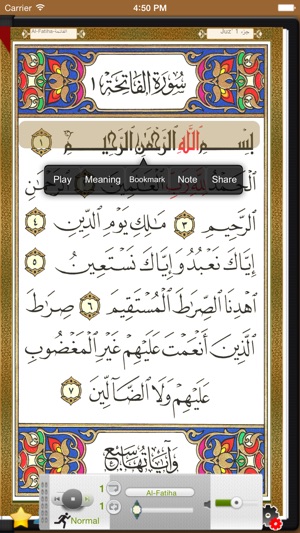 Carrier 4:50 PM
Al-Fatiha-الفاتحة Juz' 1 جزء
سُورَةُ الْفَاتِحَةِ ١
بِسْمِ اللَّهِ الرَّحْمَٰنِ الرَّحِيمِ ١
Play Meaning Bookmark Note Share
الرَّحِيمِ ٣ مَالِكِ يَوْمِ الدِّينِ
٤ إِيَّاكَ نَعْبُدُ وَإِيَّاكَ نَسْتَعِينُ ٥
اهْدِنَا الصِّرَاطَ الْمُسْتَقِيمَ ٦ صِرَاطَ
الَّذِينَ أَنْعَمْتَ عَلَيْهِمْ غَيْرِ الْمَغْضُوبِ
عَلَيْهِمْ وَلَا الضَّالِّينَ ٧
وَآيَاتُهَا سَبْعٌ
1 Al-Fatiha
1
Normal